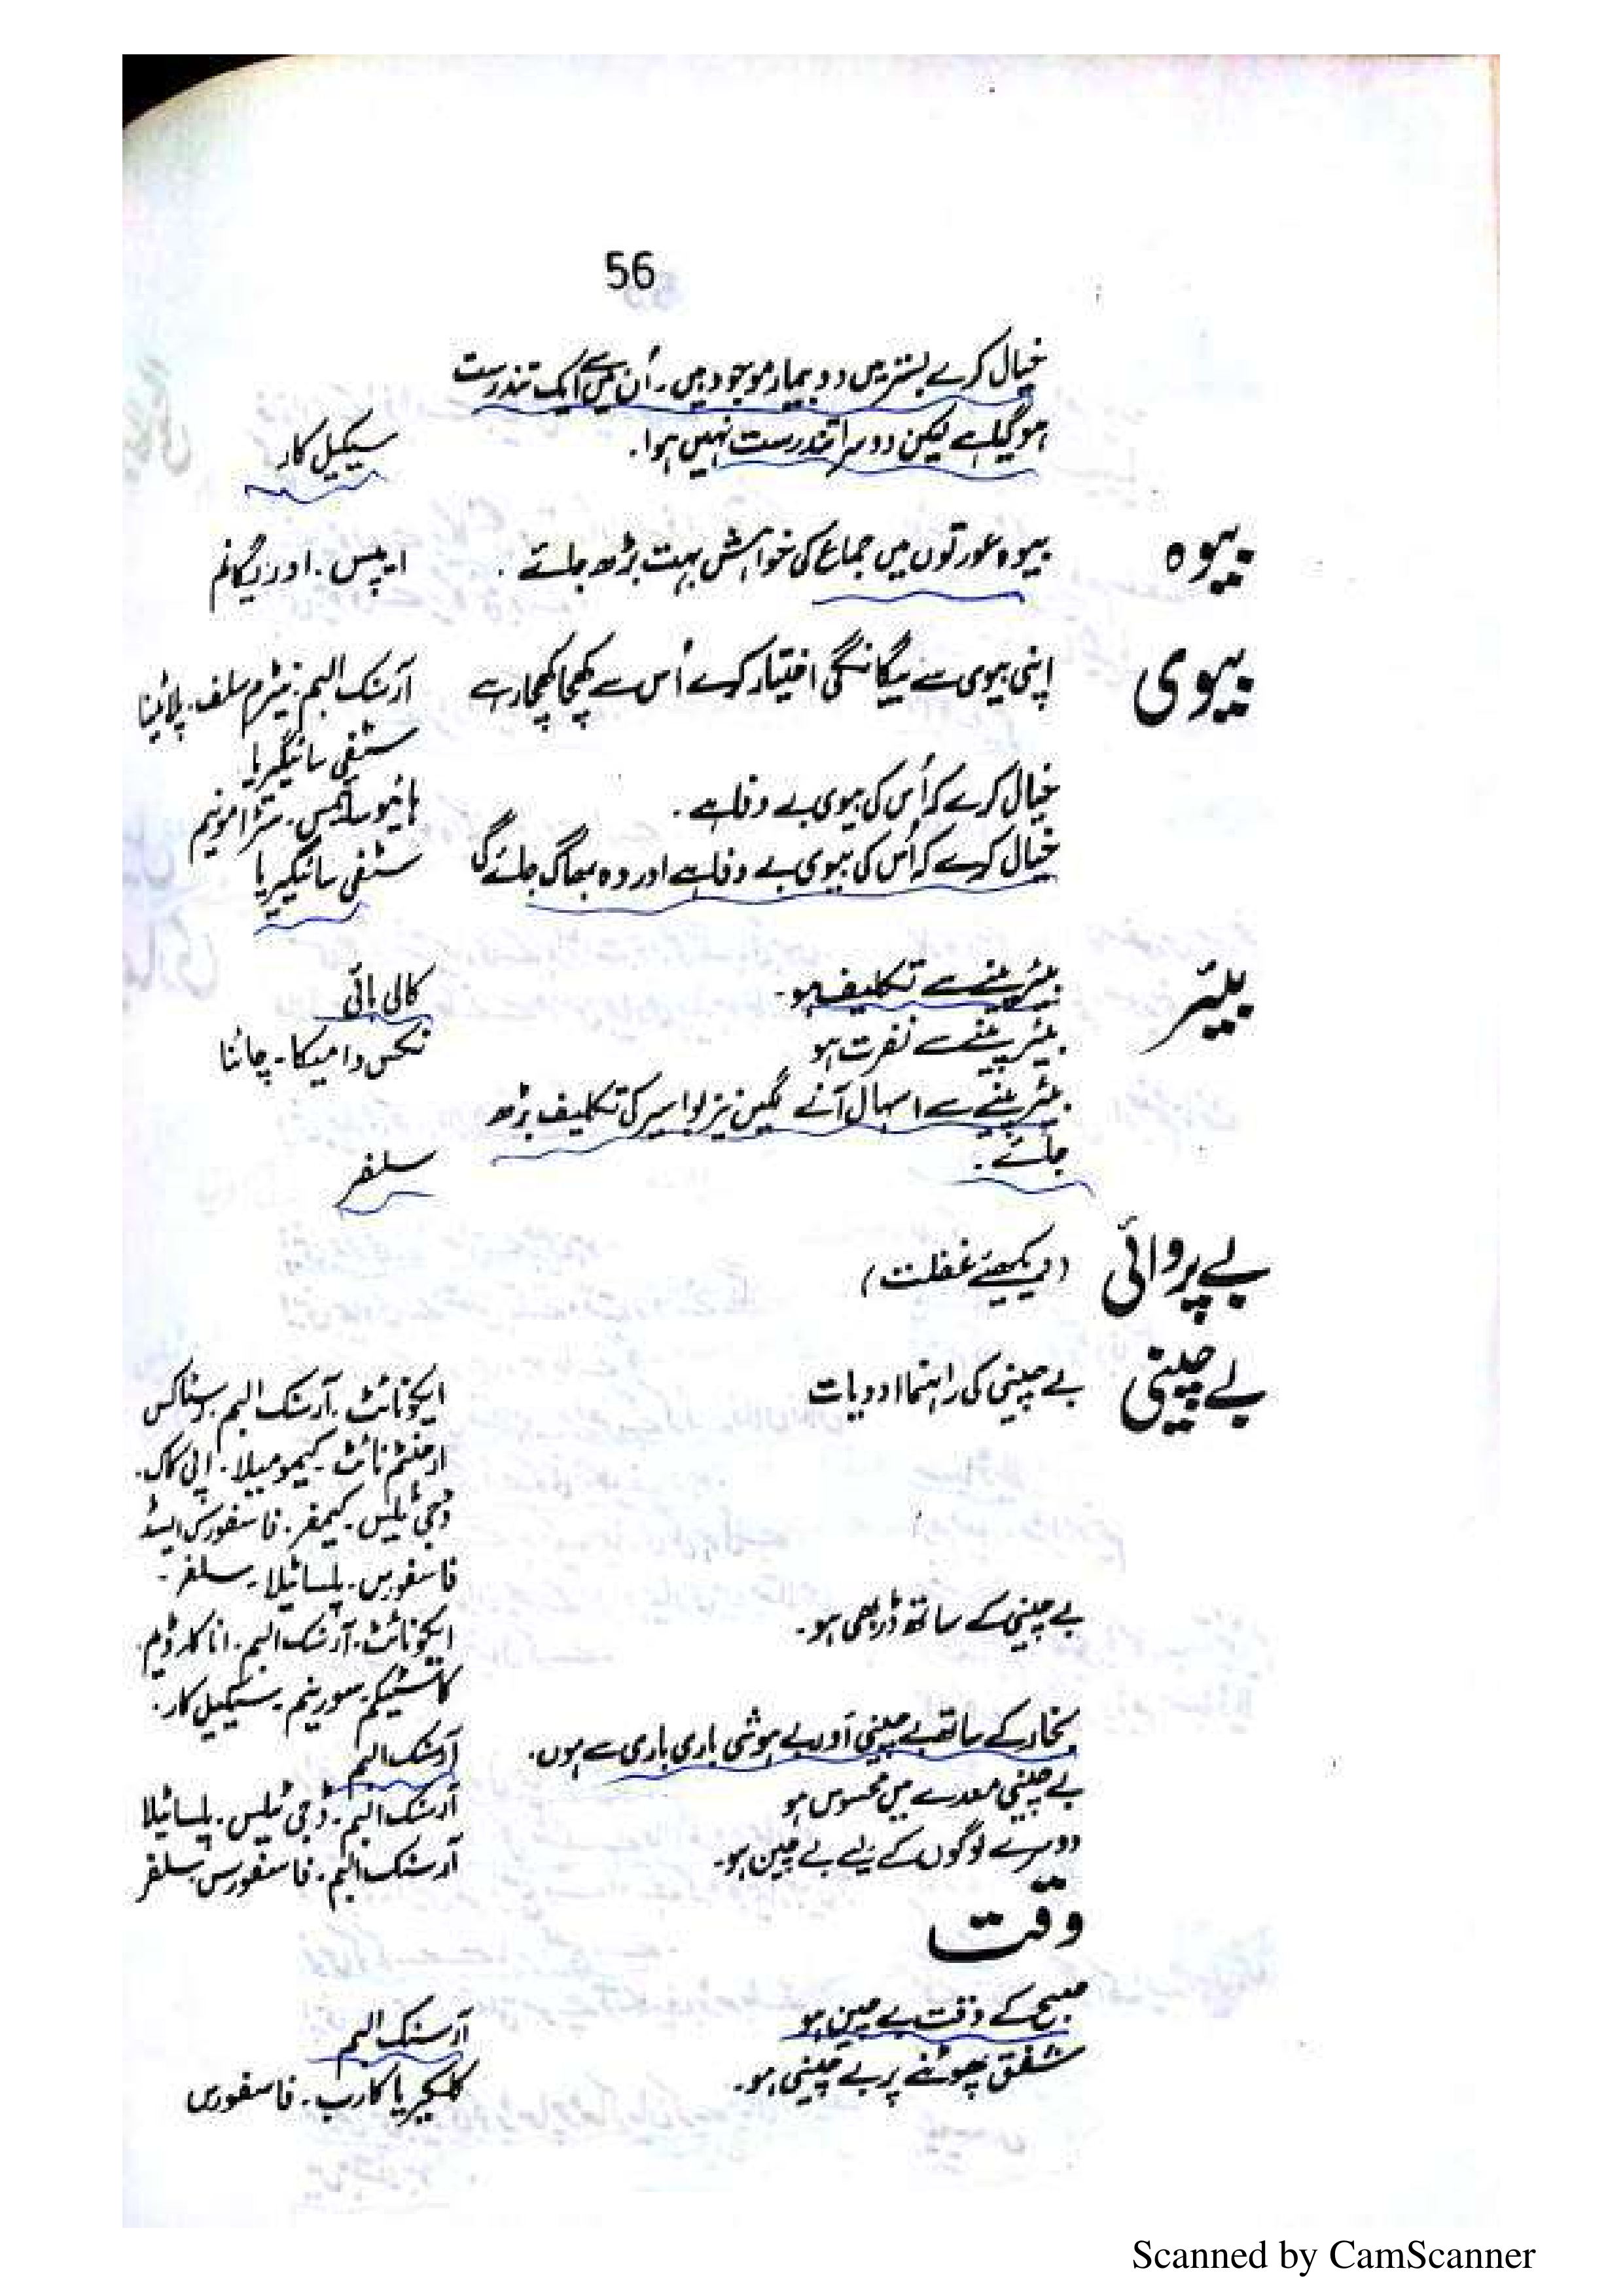 56
خیال کرے بستر میں دو بیمار موجود ہیں۔ اُن میں سے ایک تندرست
ہوگیا ہے لیکن دوسرا تندرست نہیں ہوا۔ سیکیل کار
بیوہ بیوہ عورتوں میں جماع کی خواہش بہت بڑھ جائے۔ ایپس۔ اوریگانم
بیوی اپنی بیوی سے بیگانگی اختیار کرے اُس سے کھچا کھچا رہے آرسنک البم۔ نیٹرم سلف۔ پلاٹینا
سٹفی سائیگریا
خیال کرے کہ اُس کی بیوی بے وفا ہے۔ ہائیوسائمس۔ سٹرامونیم
خیال کرے کہ اُس کی بیوی بے وفا ہے اور وہ بھاگ جائے گی سٹفی سائیگیریا
بیئر بیئر پینے سے تکلیف ہو۔ کالی بائی
بیئر پینے سے نفرت ہو نکس وامیکا۔ چائنا
بیئر پینے سے اسہال آنے لگیں نیز بواسیر کی تکلیف بڑھ
جائے۔ سلفر
بے پروائی (دیکھیئے غفلت)
بے چینی بے چینی کی راہنما ادویات ایکونائٹ۔ آرسنک البم۔
ارجنٹم نائٹ۔ کیمومیلا۔ اپی کاک۔
ڈجی ٹیلس۔ کیمفر۔ فاسفورس ایسڈ
فاسفورس۔ پلساٹیلا۔ سلفر۔
بے چینی کے ساتھ ڈر بھی ہو۔ ایکونائٹ۔ آرسنک البم۔ اناکارڈیم۔
کاسٹیکم۔ سورینم۔ سیکیل کار۔
بخار کے ساتھ بے چینی اور بے ہوشی باری باری سے ہوں۔ آرسنک البم
بے چینی معدے میں محسوس ہو آرسنک البم۔ ڈجی ٹیلس۔ پلساٹیلا
دوسرے لوگوں کے لیے بے چین ہو۔ آرسنک البم۔ فاسفورس۔ سلفر
وقت
صبح کے وقت بے چین ہو آرسنک البم
شفق پھوٹنے پر بے چینی ہو۔ کلکیریا کارب۔ فاسفورس
Scanned by CamScanner